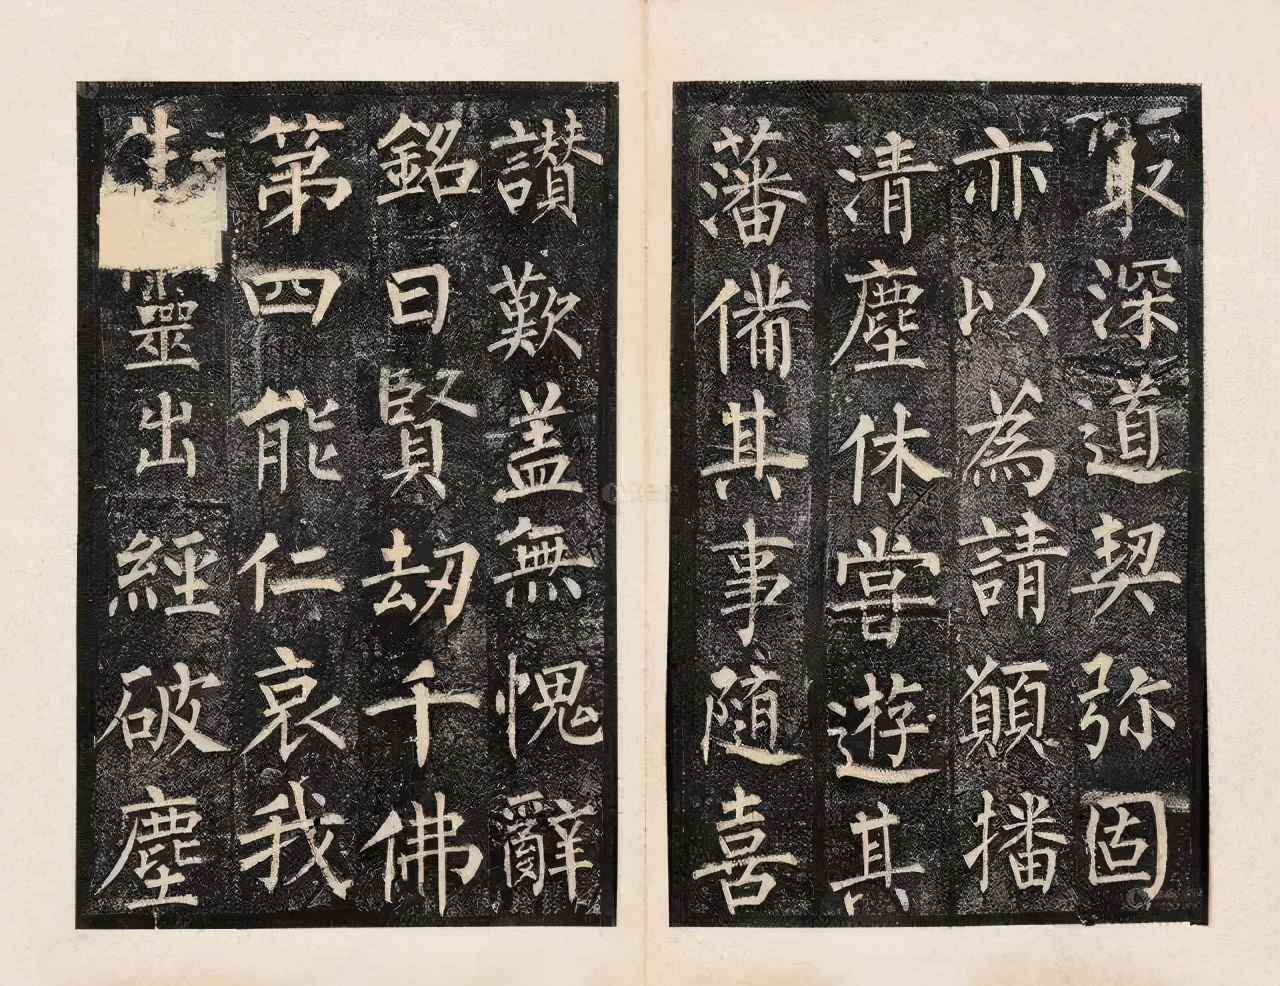 取深道契弥固
亦以為請願播
清塵休甞遊其
藩俻其事隨喜
讃歎盖無愧辭
銘曰賢劫千佛
苐四能仁哀我
生靈出經破塵